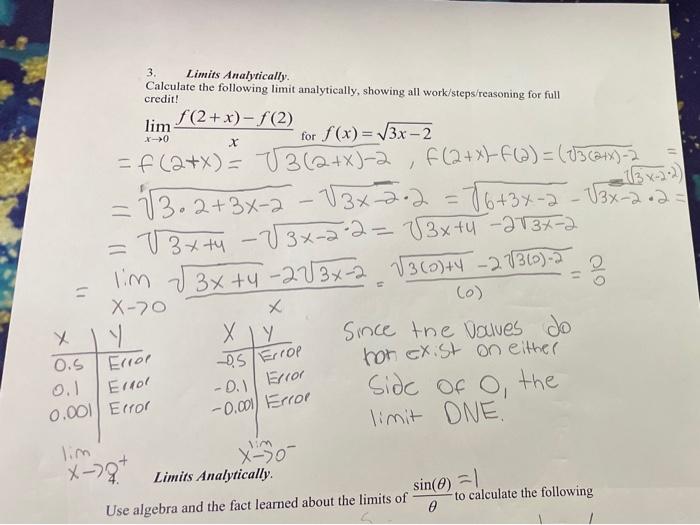 3. Limits Analytically.
Calculate the following limit analytically, showing all work/steps/reasoning for full
credit!
lim x→0 f(2+x)−f(2) / x for f(x)=√3x−2
= f(2+x) = √3(2+x)−2 , f(2+x)−f(2) = (√3(2+x)−2 =
−(√3x−2·2)
= √3·2+3x−2 − √3x−2·2 = √6+3x−2 − √3x−2·2 =
= √3x+4 − √3x−2·2 = √3x+4 −2√3x−2
= lim x→0 √3x+4−2√3x−2 / x = √3(0)+4 −2√3(0)−2 / (0) = 0/0
x | y x | y Since the values do
0.5 Error −0.5 Error non exist on either
0.1 Error −0.1 Error side of 0, the
0.001 Error −0.001 Error limit DNE.
lim x→0⁺ lim x→0⁻
4. Limits Analytically.
Use algebra and the fact learned about the limits of sin(θ)/θ =1 to calculate the following